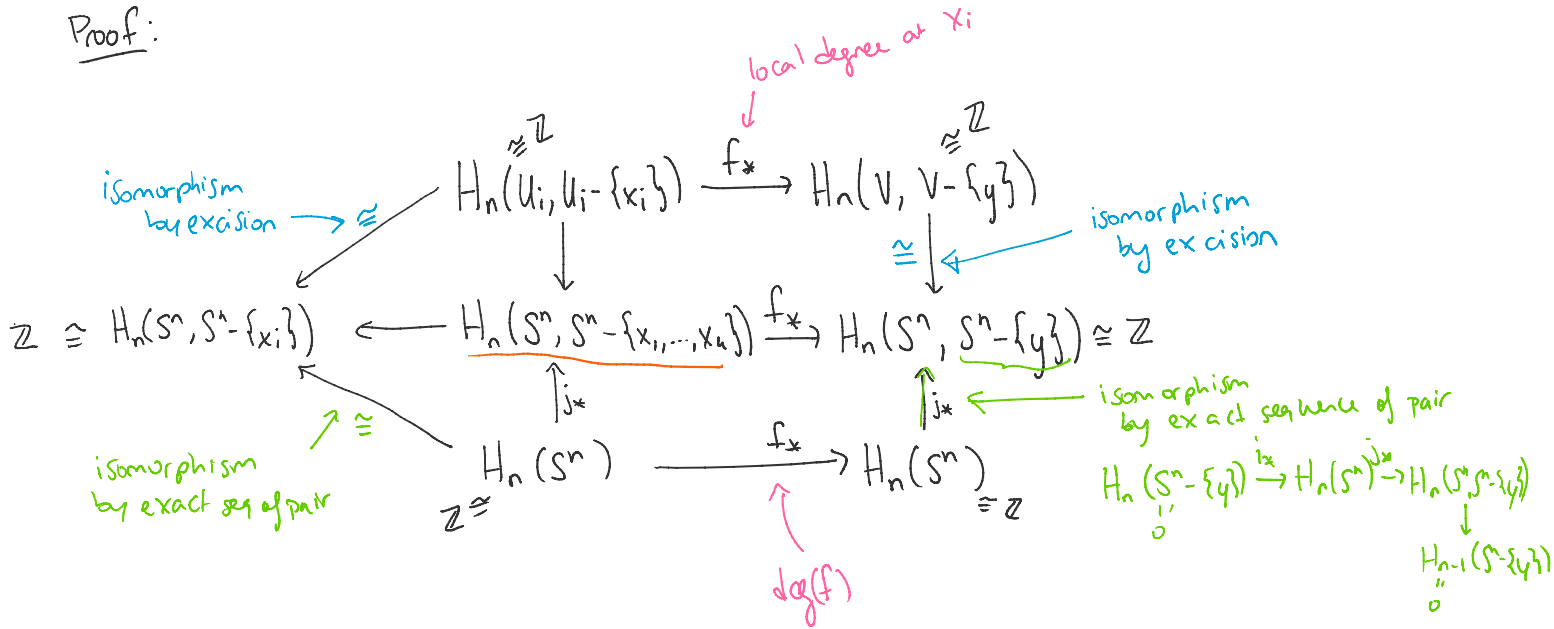 Proof:
local degree at xᵢ
≅ ℤ
≅ ℤ
Hₙ(Uᵢ, Uᵢ-{xᵢ}) →^{f_*} Hₙ(V, V-{y})
isomorphism
by excision → ≅
≅
isomorphism
by excision
ℤ ≅ Hₙ(Sⁿ, Sⁿ-{xᵢ}) ← Hₙ(Sⁿ, Sⁿ-{x₁,...,xₖ}) →^{f_*} Hₙ(Sⁿ, Sⁿ-{y}) ≅ ℤ
↑ j_*
↑ j_*
isomorphism
by exact sequence of pair
≅
isomorphism
by exact seq of pair
Hₙ(Sⁿ) →^{f_*} Hₙ(Sⁿ)
ℤ ≅
≅ ℤ
deg(f)
Hₙ(Sⁿ-{y}) →^{i_*} Hₙ(Sⁿ) →^{j_*} Hₙ(Sⁿ,Sⁿ-{y})
0
Hₙ₋₁(Sⁿ-{y})
0